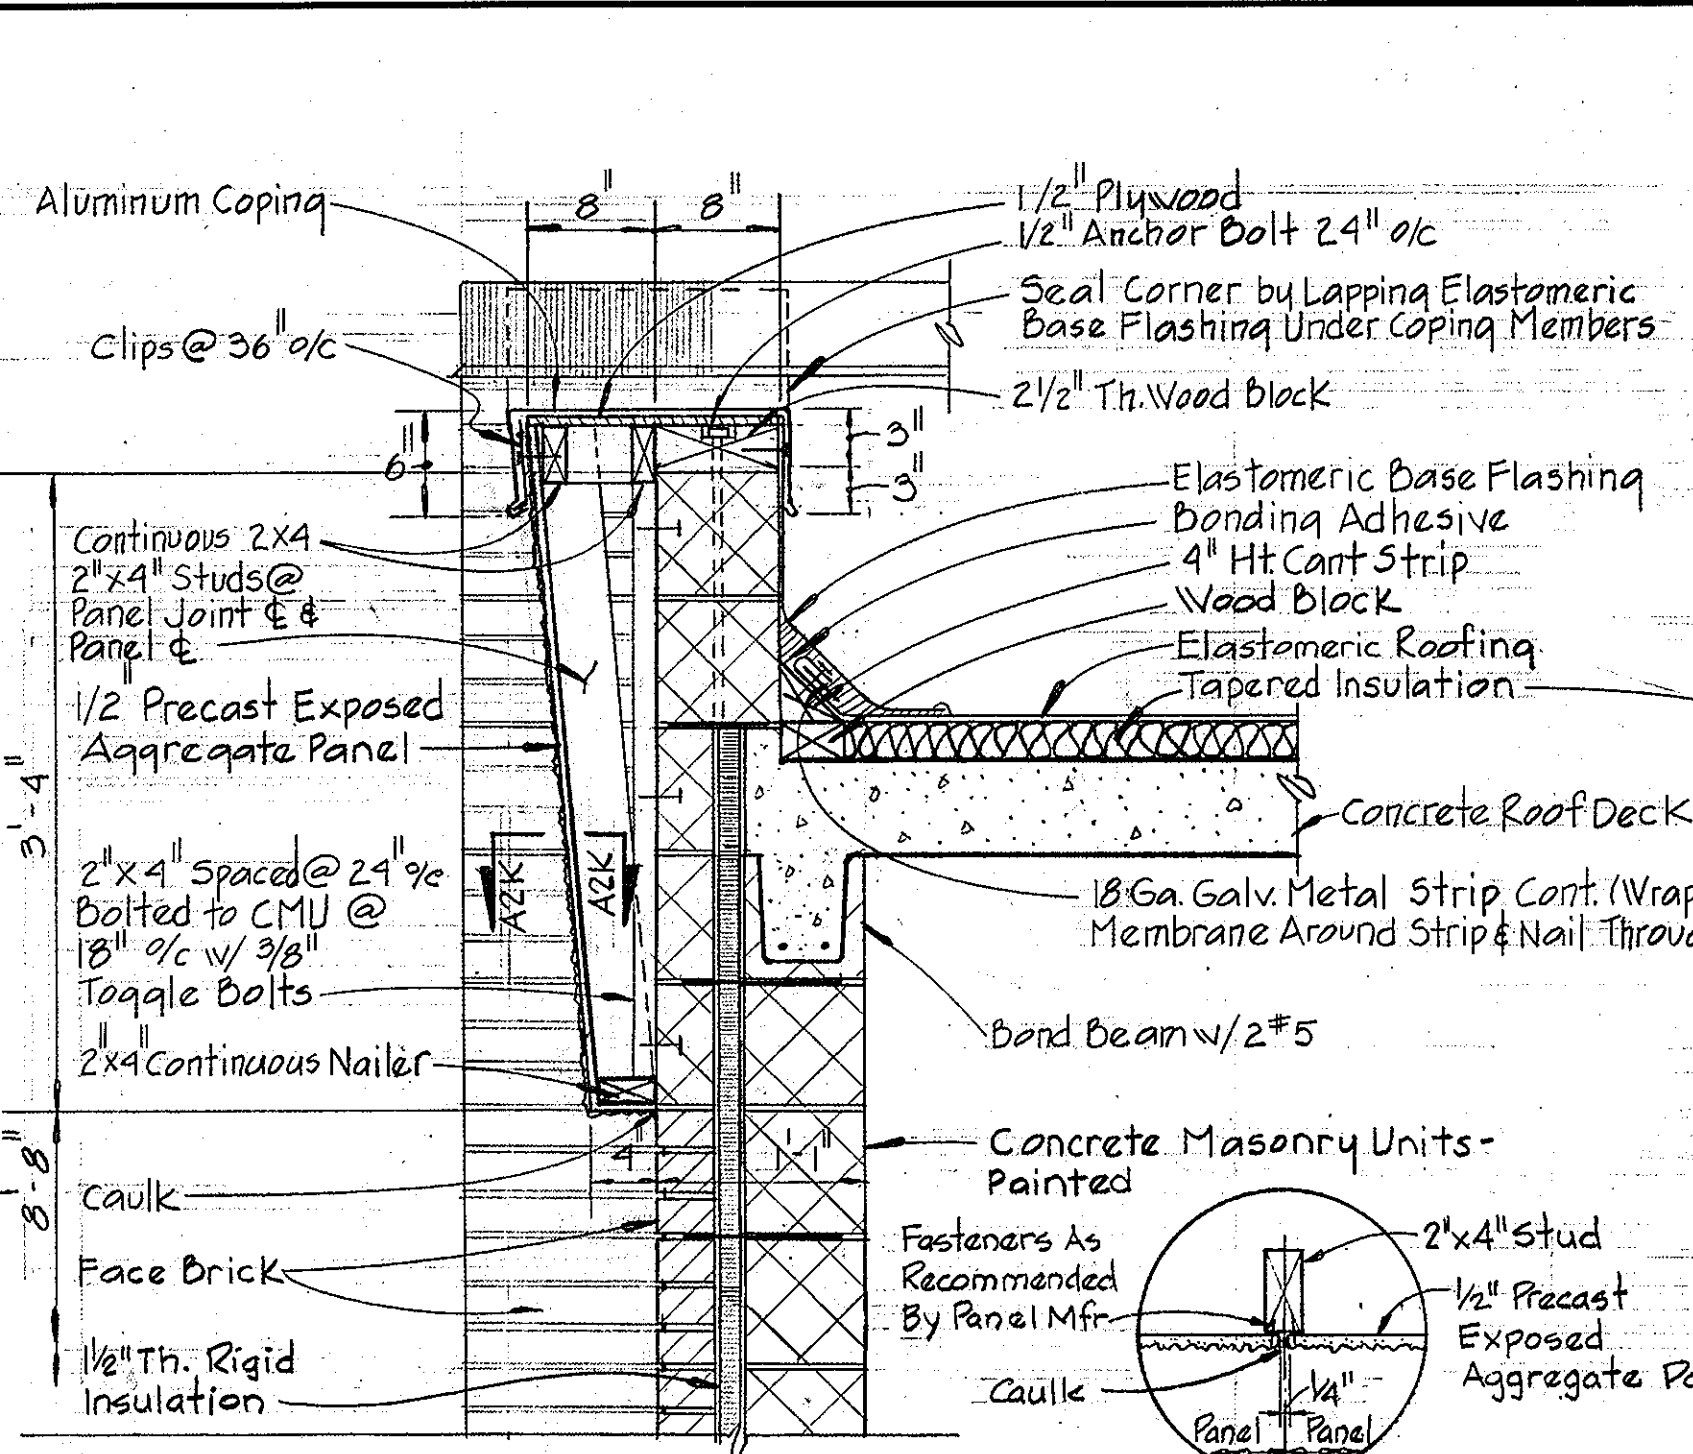 Aluminum Coping
8" 8"
1/2" Plywood
1/2" Anchor Bolt 24" o/c
Seal Corner by Lapping Elastomeric
Base Flashing Under Coping Members
Clips @ 36" o/c
2 1/2" Th. Wood Block
6"
3"
3"
Elastomeric Base Flashing
Bonding Adhesive
4" Ht. Cant Strip
Wood Block
Elastomeric Roofing
Tapered Insulation
Continuous 2x4
2"x4" Studs @
Panel Joint ℄ &
Panel ℄
1/2" Precast Exposed
Aggregate Panel
3'-4"
Concrete Roof Deck
2"x4" Spaced @ 24" o/c
Bolted to CMU @
18" o/c w/ 3/8"
Toggle Bolts
A2K A2K
18 Ga. Galv. Metal Strip Cont. (Wrap
Membrane Around Strip & Nail Throu
Bond Beam w/ 2 #5
2"x4" Continuous Nailer
8'-8"
4" 1'-1"
Concrete Masonry Units-
Painted
Caulk
Face Brick
1 1/2" Th. Rigid
Insulation
Fasteners As
Recommended
By Panel Mfr
2"x4" Stud
1/2" Precast
Exposed
Aggregate Pa
Caulk
1/4"
Panel Panel